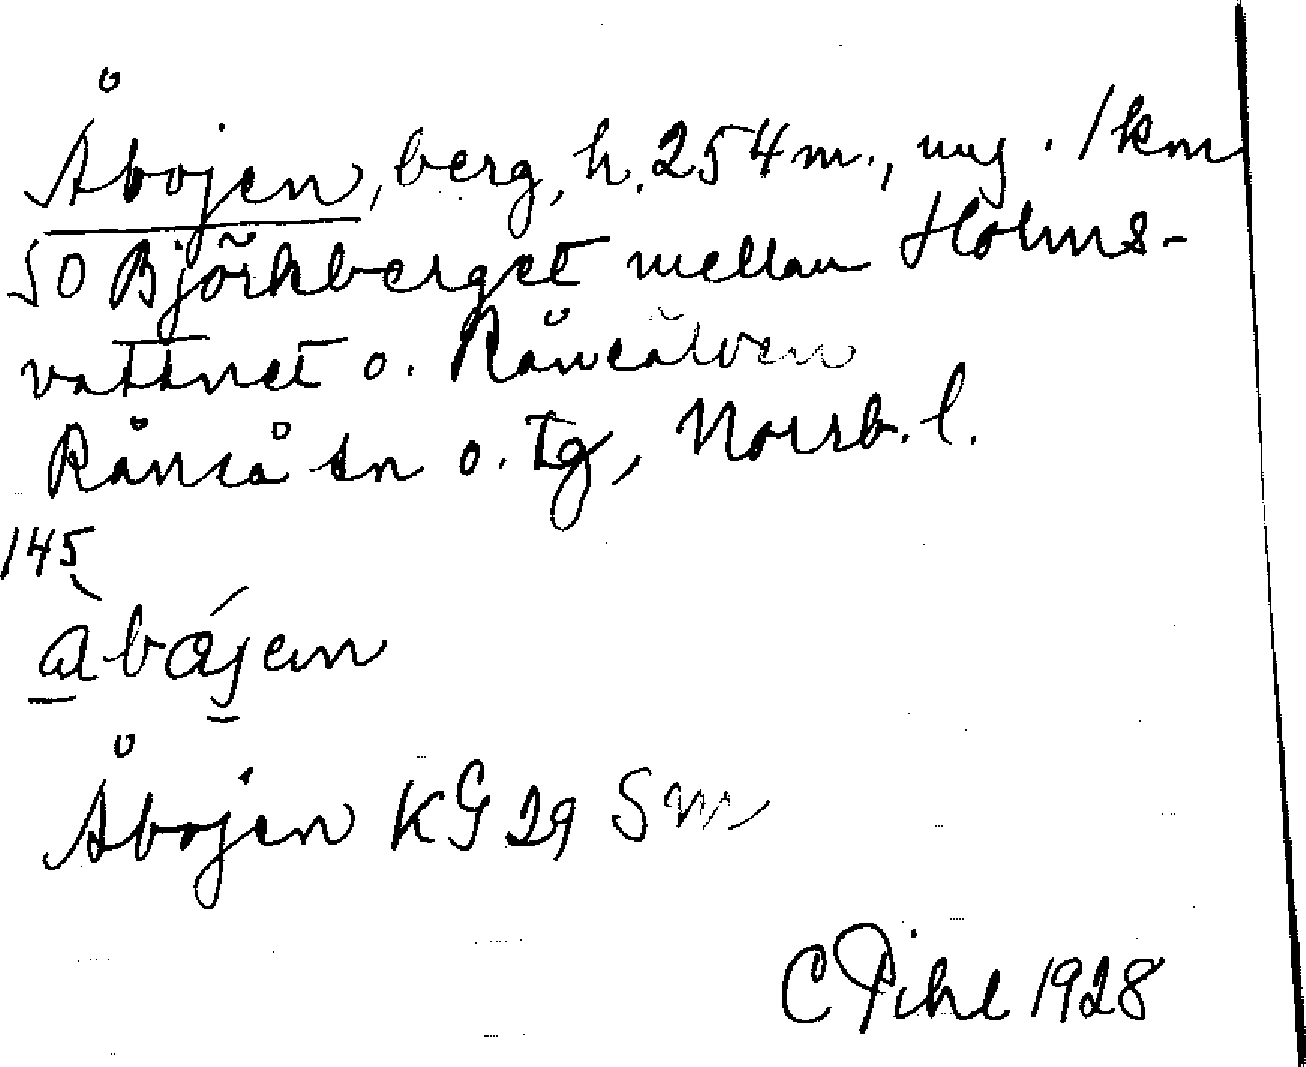 Åbojen, berg, h. 254 m., ung. 1 km
SO Björkberget mellan Holms-
vattnet o. Råneälven
Råneå sn o. tg, Norrb. l.
145
àbåjen
Åbojen KG 29 Sm
C Pihl 1928